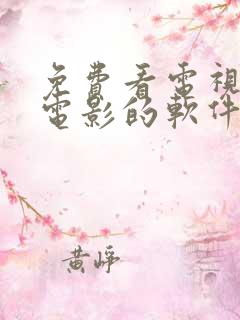 免費看電視
電影的軟件
黄崢